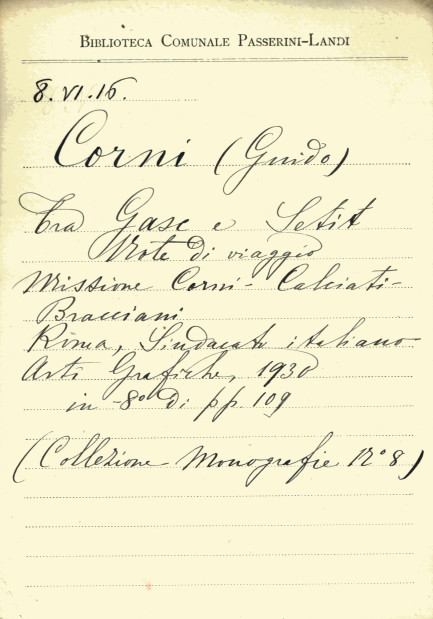 BIBLIOTECA COMUNALE PASSERINI-LANDI
8.VI.16.
Corni (Guido)
Tra Gasc e Setit
Note di viaggio
Missione Corni- Calciati-
Bracciani
Roma, Sindacato italiano
Arti Grafiche, 1930
in -8° di pp. 109
(Collezione Monografie N° 8)